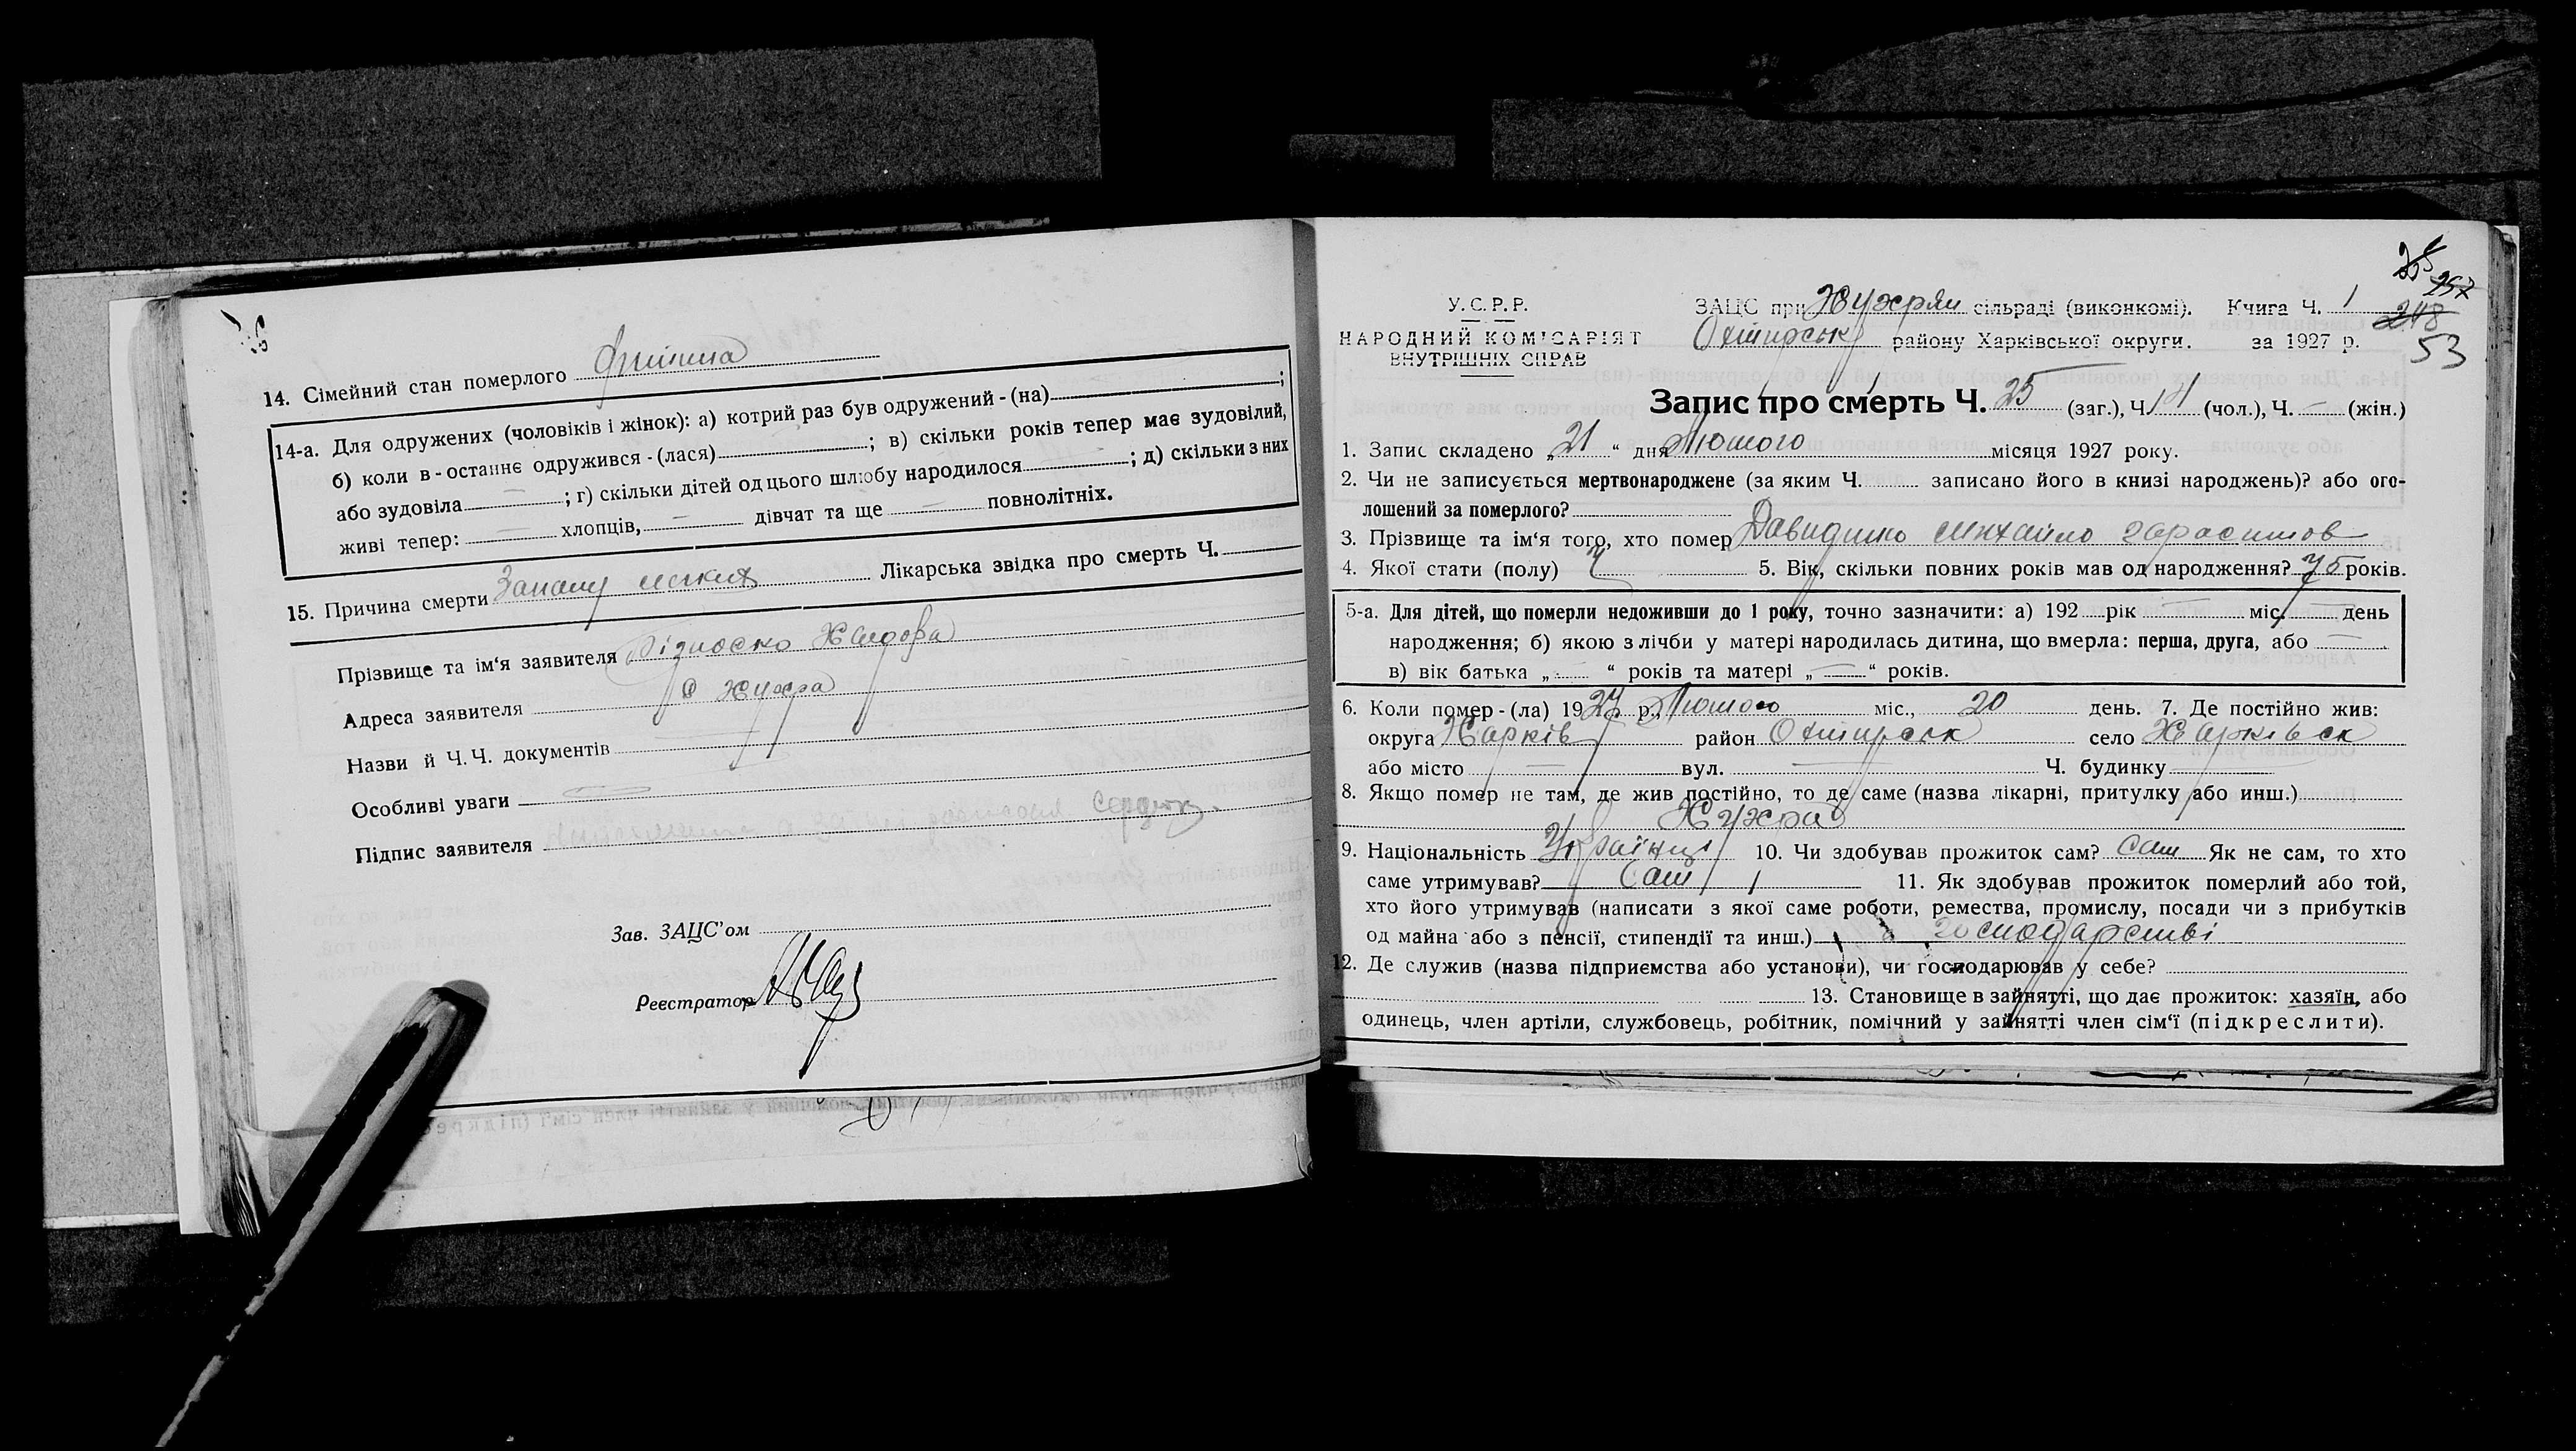 14. Сімейний стан померлого
14-а. Для одружених (чоловіків і жінок): а) котрий раз був одружений - (на) ;
б) коли в-останнє одружився - (лася) ; в) скільки років тепер має зудовілий,
або зудовіла — ; г) скільки дітей од цього шлюбу народилося ; д) скільки з них
живі тепер: — хлопців, — дівчат та ще — повнолітніх.
15. Причина смерти Лікарська звідка про смерть Ч.
Прізвище та ім'я заявителя
Адреса заявителя
Назви й Ч. Ч. документів
Особливі уваги
Підпис заявителя
Зав. ЗАЦС'ом
Реєстратор
257
248
53
У. С. Р. Р.
НАРОДНИЙ КОМІСАРІЯТ
ВНУТРІШНІХ СПРАВ
ЗАЦС при сільраді (виконкомі). Книга Ч. 1
Охтирськ району Харківської округи. за 1927 р.
Запис про смерть Ч. 25 (заг.), Ч. (чол.), Ч. — (жін.)
1. Запис складено „21“ дня Лютого місяця 1927 року.
2. Чи не записується мертвонароджене (за яким Ч. записано його в книзі народжень)? або ого-
лошений за померлого?
3. Прізвище та ім'я того, хто помер Михайло
4. Якої стати (полу) Ч 5. Вік, скільки повних років мав од народження? 75 років.
5-а. Для дітей, що померли недоживши до 1 року, точно зазначити: а) 192 рік — міс. — день
народження; б) якою з лічби у матері народилась дитина, що вмерла: перша, друга, або —
в) вік батька „—“ років та матері „—“ років.
6. Коли помер - (ла) 1927 р., Лютого міс., 20 день. 7. Де постійно жив:
округа Харків район Охтирськ село Харківск
або місто — вул. — Ч. будинку —
8. Якщо помер не там, де жив постійно, то де саме (назва лікарні, притулку або инш.)
9. Національність Українці 10. Чи здобував прожиток сам? Сам Як не сам, то хто
саме утримував? Сам 11. Як здобував прожиток померлий або той,
хто його утримував (написати з якої саме роботи, ремества, промислу, посади чи з прибутків
од майна або з пенсії, стипендії та инш.) господарстві
12. Де служив (назва підприємства або установи), чи господарював у себе?
13. Становище в зайнятті, що дає прожиток: хазяїн, або
одинець, член артіли, службовець, робітник, помічний у зайнятті член сім'ї (підкреслити).